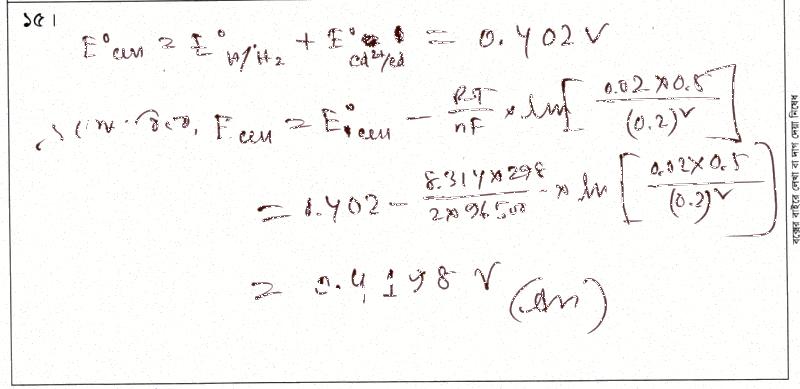 ১৫।
E°cell = E°H/H2 + E°Cd2+/Cd = 0.402V
Ecell = E°cell − RT/nF × ln[0.02×0.5/(0.2)²]
= 0.402 − 8.314×298/2×96500 × ln[0.02×0.5/(0.2)²]
= 0.4198 V (Ans)
বক্সের বাইরে লেখা বা দাগ দেয়া নিষেধ